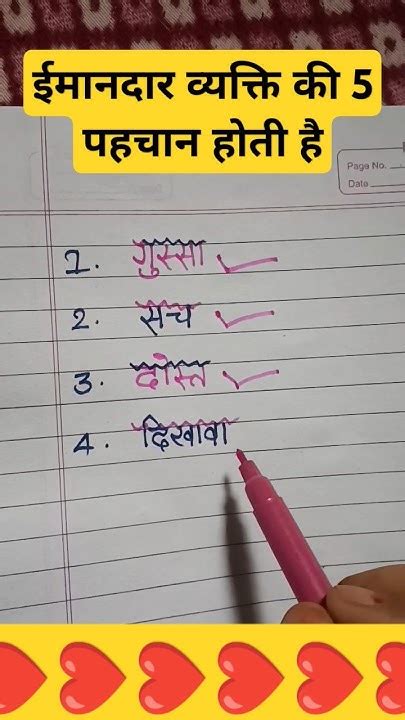 ईमानदार व्यक्ति की 5
पहचान होती है
Page No.
Date
1. गुस्सा
2. सच
3. दोस्त
4. दिखावा